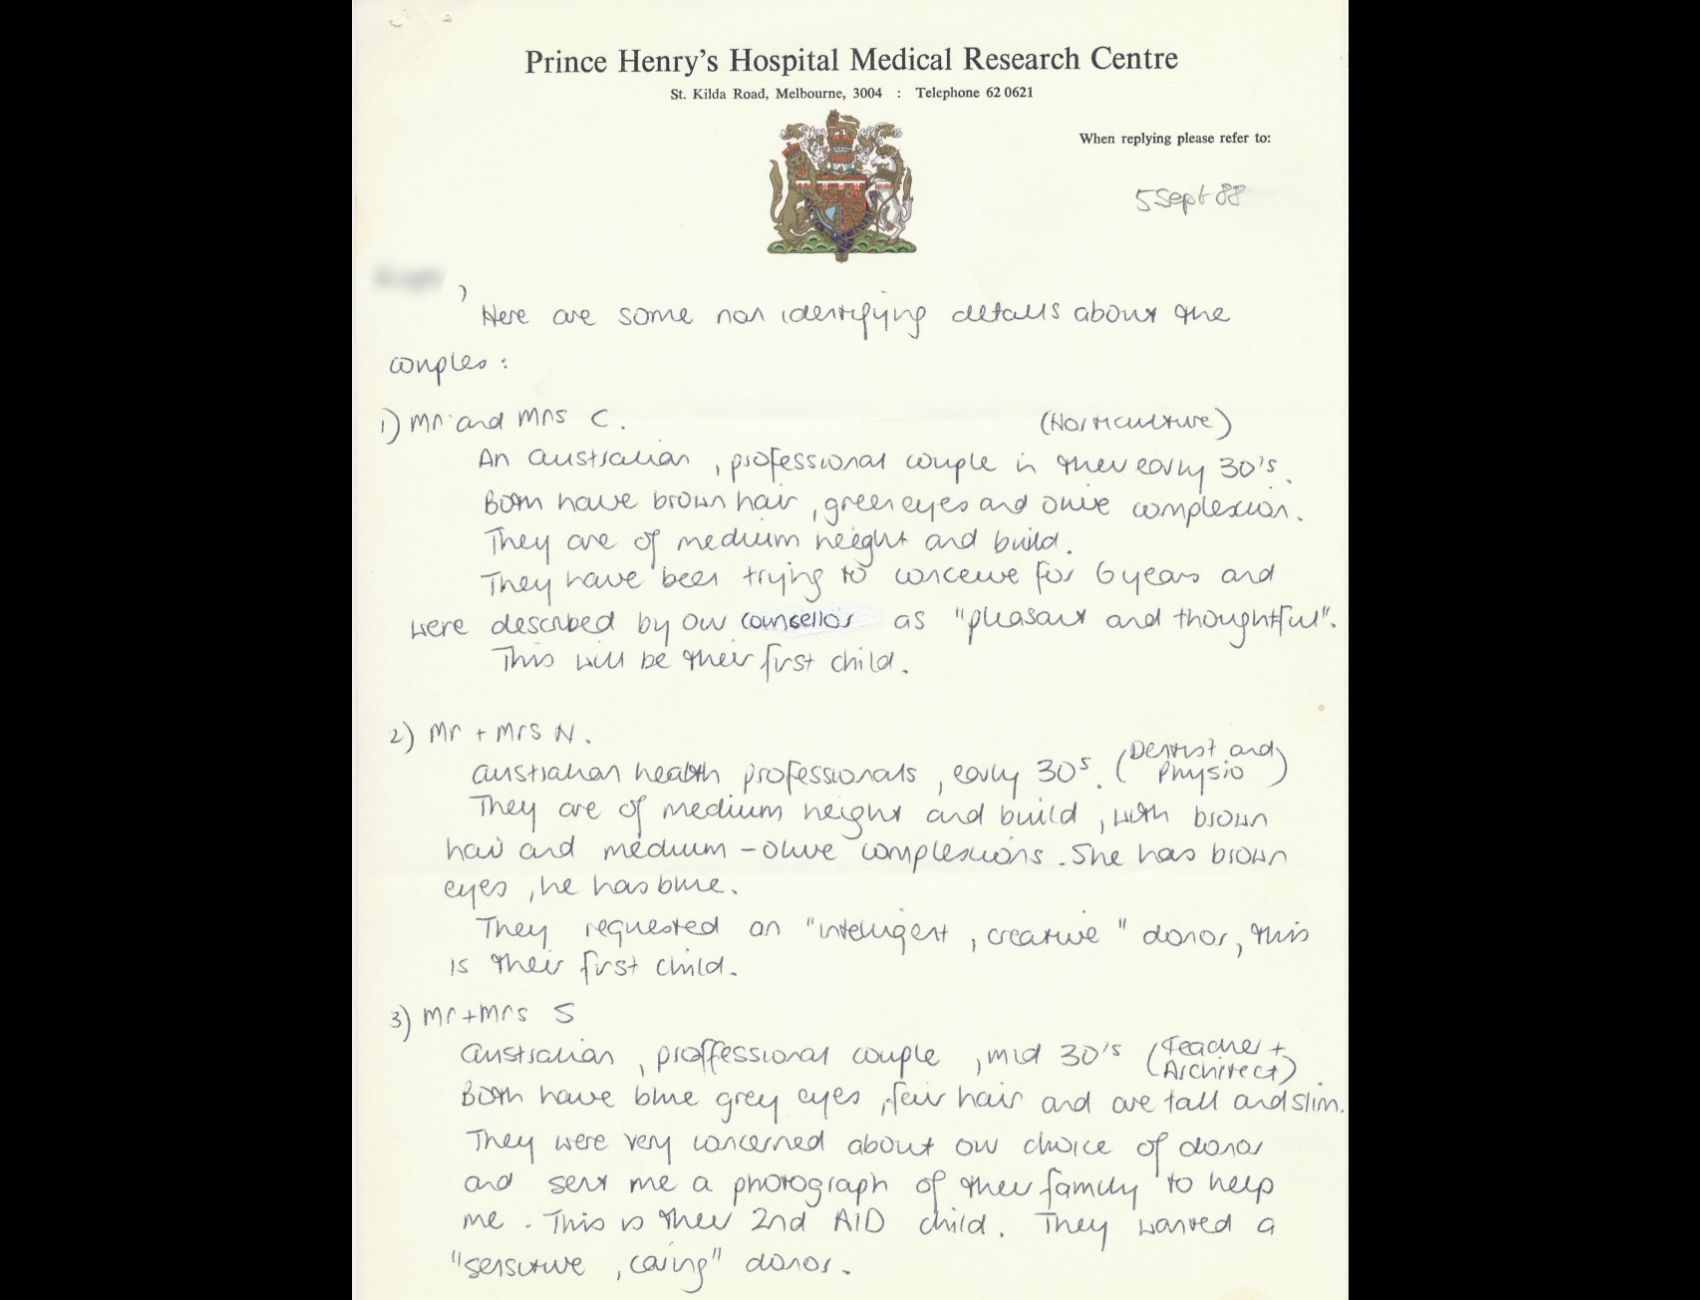 Prince Henry's Hospital Medical Research Centre
St. Kilda Road, Melbourne, 3004 : Telephone 62 0621
When replying please refer to:
5 Sept 88
,
Here are some non identifying details about the
couples:
1) Mr and Mrs C. (Horticulture)
An Australian, professional couple in their early 30's.
Both have brown hair, green eyes and olive complexion.
They are of medium height and build.
They have been trying to conceive for 6 years and
were described by our counsellor as "pleasant and thoughtful".
This will be their first child.
2) Mr + Mrs N.
Australian health professionals, early 30s. (Dentist and
Physio)
They are of medium height and build, with brown
hair and medium-olive complexions. She has brown
eyes, he has blue.
They requested an "intelligent, creative" donor, this
is their first child.
3) Mr + Mrs S
Australian, proffessional couple, mid 30's (Teacher +
Architect).
Both have blue grey eyes, fair hair and are tall and slim.
They were very concerned about our choice of donor
and sent me a photograph of their family to help
me. This is their 2nd AID child. They wanted a
"sensitive, caring" donor.